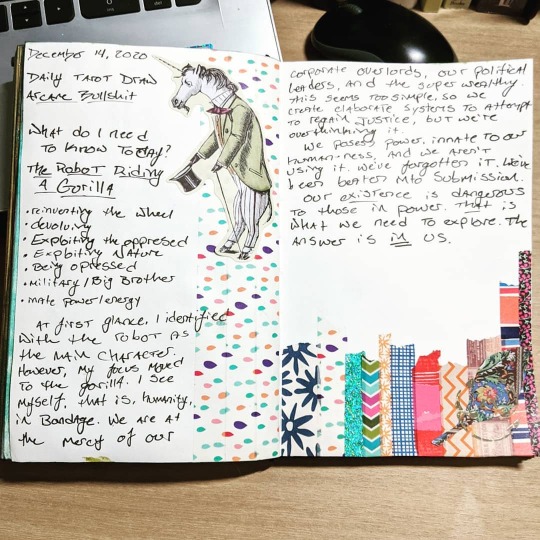 December 14, 2020
Daily Tarot Draw
Arcane Bullshit
What do I need
to know today?
The Robot Riding
A Gorilla
• reinventing the wheel
• devolving
• Exploiting the oppressed
• Exploiting Nature
• Being oppressed
• Military / Big Brother
• inate power/energy
At first glance, I identified
with the robot as
the main character.
However, my focus moved
to the gorilla. I see
myself, that is, humanity,
in Bondage. We are at
the mercy of our
corporate overlords, our political
leaders, and the super wealthy.
This seems too simple, so we
create elaborate systems to attempt
to regain justice, but we're
overthinking it.
We posess power innate to our
human-ness, and we aren't
using it. We've forgotten it. We've
been beaten into submission.
Our existence is dangerous
to those in power. That is
what we need to explore. The
answer is in us.